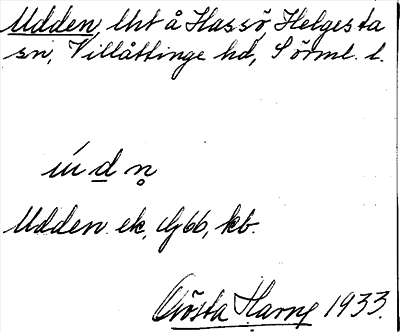 Udden, lht å Hassö, Helgesta
sn, Villåttinge hd, Sörml. l.
ú d n̥
Udden ek, Gbb, kb.
Gösta Harne 1933.